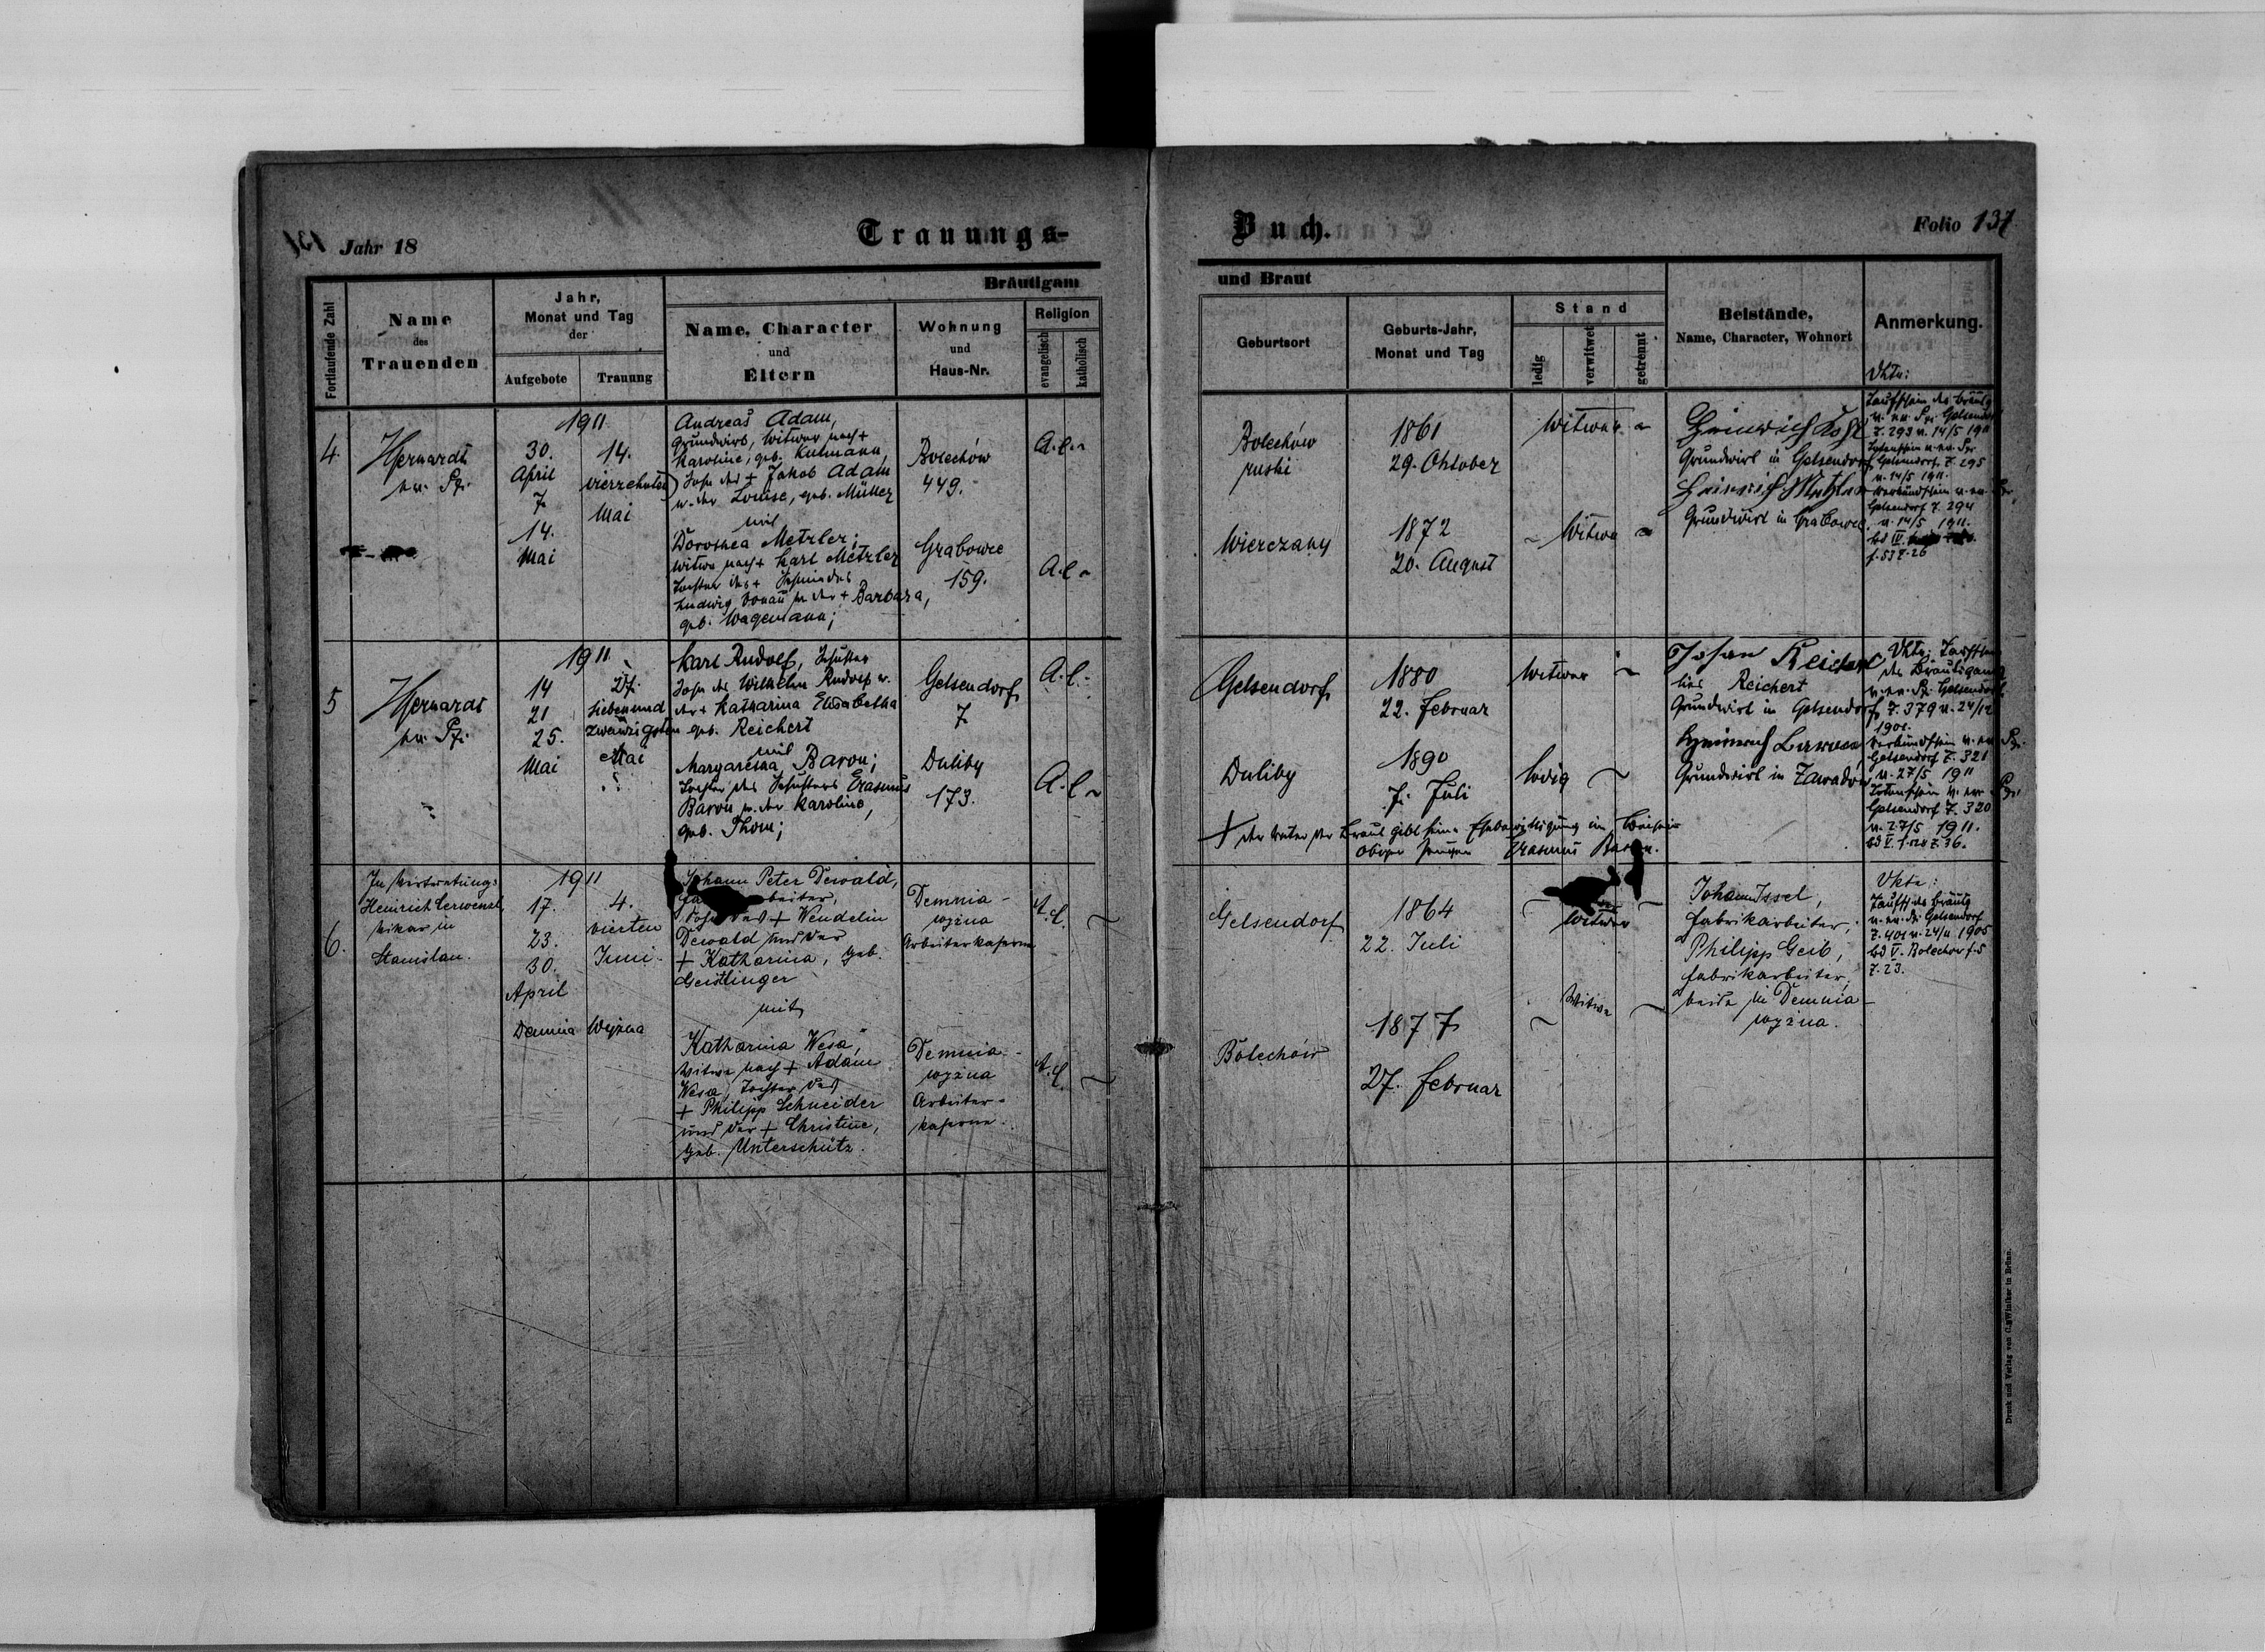 Jahr 18
Trauungs-
Buch.
Folio 131
Bräutigam
und Braut
Fortlaufende Zahl
Name
des
Trauenden
Jahr,
Monat und Tag
der
Aufgebote
Trauung
Name, Character
und
Eltern
Wohnung
und
Haus-Nr.
Religion
evangelisch
katholisch
Geburtsort
Geburts-Jahr,
Monat und Tag
Stand
ledig
verwitwet
getrennt
Beistände,
Name, Character, Wohnort
Anmerkung.
Vktn:
4.
ev. Pfr.
1911
30.
April
7.
14.
Mai
14.
vierzehnten
Mai
Andreas Adam,
Grundwirt, Witwer nach +
Karoline, geb. Kulmann,
Sohn des + Jakob Adam
u. der Louise, geb. Müller
mit
Dorothea Metzler;
Witwe nach + Karl Metzler
Tochter des +
Ludwig Donau u. der + Barbara,
geb. Wagemann;
Bolechów
449.
Grabowce
159.
A.C.
A.C.
Bolechów
ruski
Wierczany
1861
29. Oktober
1872
20. August
Witwer
Witwe
Heinrich
Grundwirt in Gelsendorf
Heinrich Metzler
Grundwirt in Grabowce
Taufschein des Bräutig
v. ev. Pfr. Gelsendorf
Z. 293 v. 14/5 1911
Gelsendorf Z. 295
v. 14/5 1911.
Gelsendorf Z. 294
v. 14/5 1911.
bd IV.
f. 53 Z. 26
5
ev. Pfr.
1911
14
21
25.
Mai
27.
siebenund
zwanzigsten
Mai
Karl Rudolf,
Sohn des Wilhelm Rudolf u.
der + Katharina Elisabetha
geb. Reichert
mit
Margaretha Baron;
Tochter des Schusters Erasmus
Baron u. der Karoline,
geb. Thom;
Gelsendorf
7.
Duliby
173.
A.C.
A.C.
Gelsendorf
Duliby
1880
22. Februar
1890
7. Juli
Witwer
ledig
+ der Vater der Braut gibt seine Ehebewilligung im Beisein
obiger Zeugen Erasmus Baron.
Johan Reichert
lies Reichert
Grundwirt in Gelsendorf
Heinrich
Grundwirt in Zawadow
Vktn: Taufschein
des Bräutigams
v. ev. Pfr. Gelsendorf
Z. 379 v. 24/12
Gelsendorf Z. 321
v. 27/5 1911
Gelsendorf Z. 320
v. 27/5 1911.
6.
In Vertretung:
Heinrich
Vikar in
Stanislau.
1911
17.
23.
30.
April
Demnia Wyżna
4.
vierten
Juni
Johann Peter Dewald,
Sohn des + Wendelin
Dewald und der
+ Katharina, geb.
Geistlinger
mit
Katharina Wesa,
Witwe nach + Adam
Wesa, Tochter des
+ Philipp Schneider
und der + Christine,
geb. Unterschütz.
Demnia-
wyżna
Arbeiterkaserne
Demnia-
wyżna
Arbeiter-
kaserne.
A.C.
A.C.
Gelsendorf
Bolechów
1864
22. Juli
1877
27. Februar
Witwer
Witwe
Johann Issel,
Fabrikarbeiter;
Philipp Geib,
Fabrikarbeiter,
beide in Demnia-
wyżna.
Vktn:
Taufsch. des Bräutig
v. ev. Pfr. Gelsendorf
Z. 401 v. 24/11 1905
bd V. Bolechow f. 5
Z. 23.
Druck und Verlag von C. Winiker in Brünn.